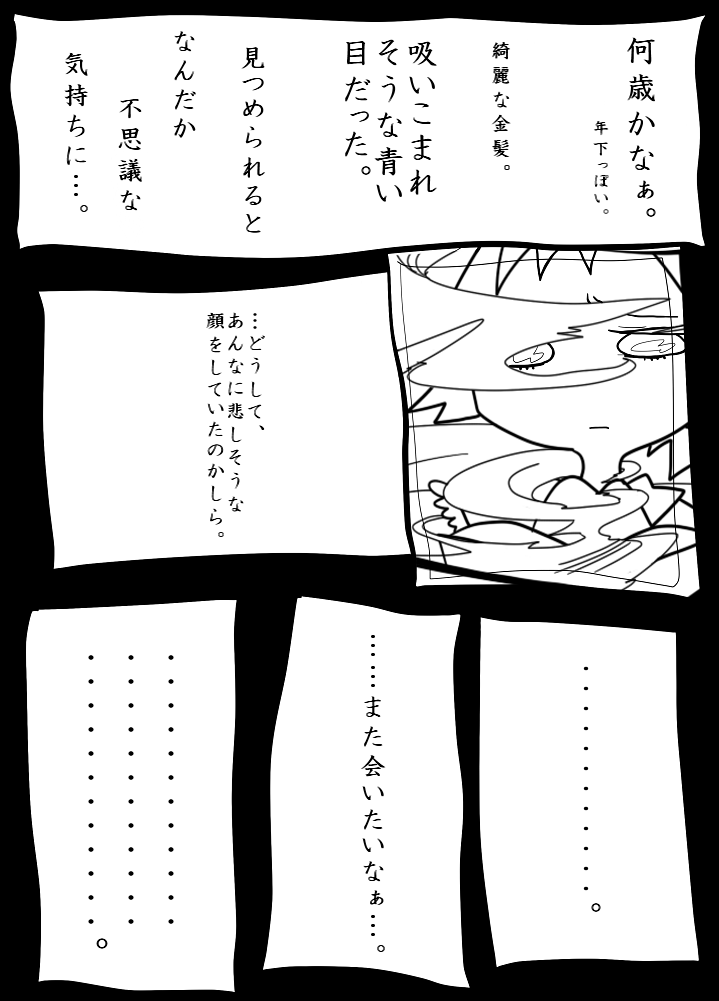 何歳かなぁ。
年下っぽい。
綺麗な金髪。
吸いこまれ
そうな青い
目だった。
見つめられると
なんだか
不思議な
気持ちに…。
…どうして、
あんなに悲しそうな
顔をしていたのかしら。
…………。
……また会いたいなぁ…。
…………
…………
…………。